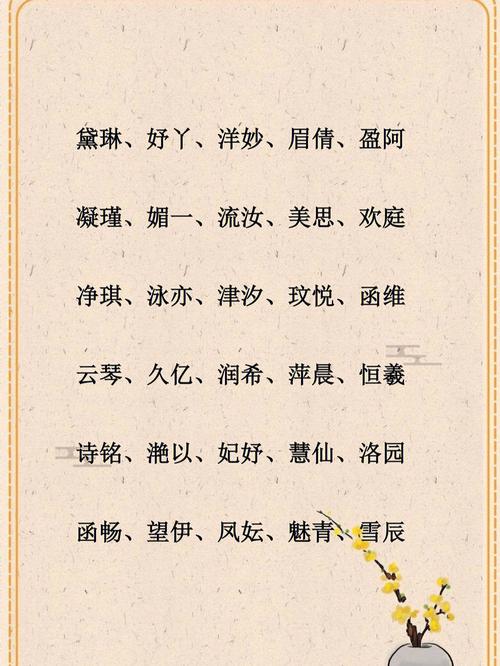 黛琳、妤丫、洋妙、眉倩、盈阿
凝瑾、媚一、流汝、美思、欢庭
净琪、泳亦、津汐、玟悦、函维
云琴、久亿、润希、萍晨、恒羲
诗铭、滟以、妃妤、慧仙、洛园
函畅、望伊、凤妘、魅青、雪辰